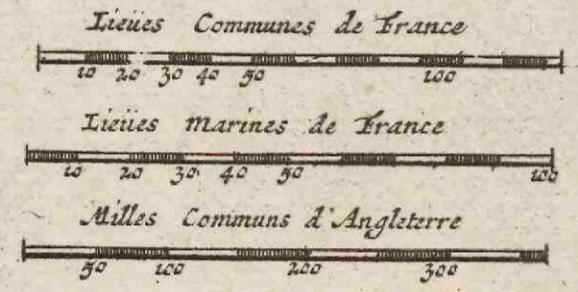 Lieües Communes de France
10 20 30 40 50 100
Lieües marines de France
10 20 30 40 50 100
Milles Communs d'Angleterre
50 100 200 300